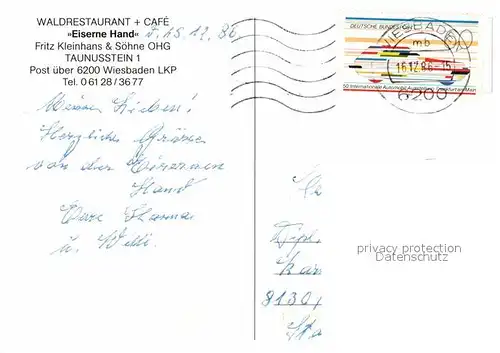 WALDRESTAURANT + CAFÉ
»Eiserne Hand«
Fritz Kleinhans & Söhne OHG
TAUNUSSTEIN 1
Post über 6200 Wiesbaden LKP
Tel. 0 61 28 / 36 77
15.12.86
Meine Lieben!
Herzliche Grüsse
von der Eisernen
Hand
Eure
u. Willi.
DEUTSCHE BUNDESPOST
WIESBADEN
mb
16.12.86-15
6200
50 Internationale Automobil-Ausstellung Frankfurt am Main
Dipl.
8130/
privacy protection
Datenschutz